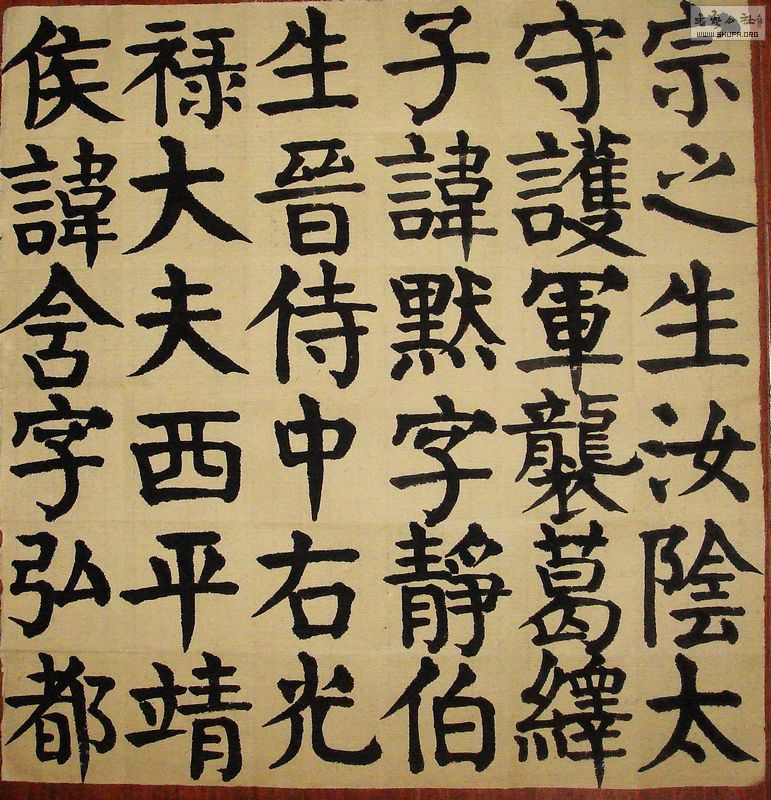 宗之生汝陰太
守護軍襲葛繹
子諱黙字靜伯
生晉侍中右光
禄大夫西平靖
侯諱含字弘都
WWW.SHUFA.ORG